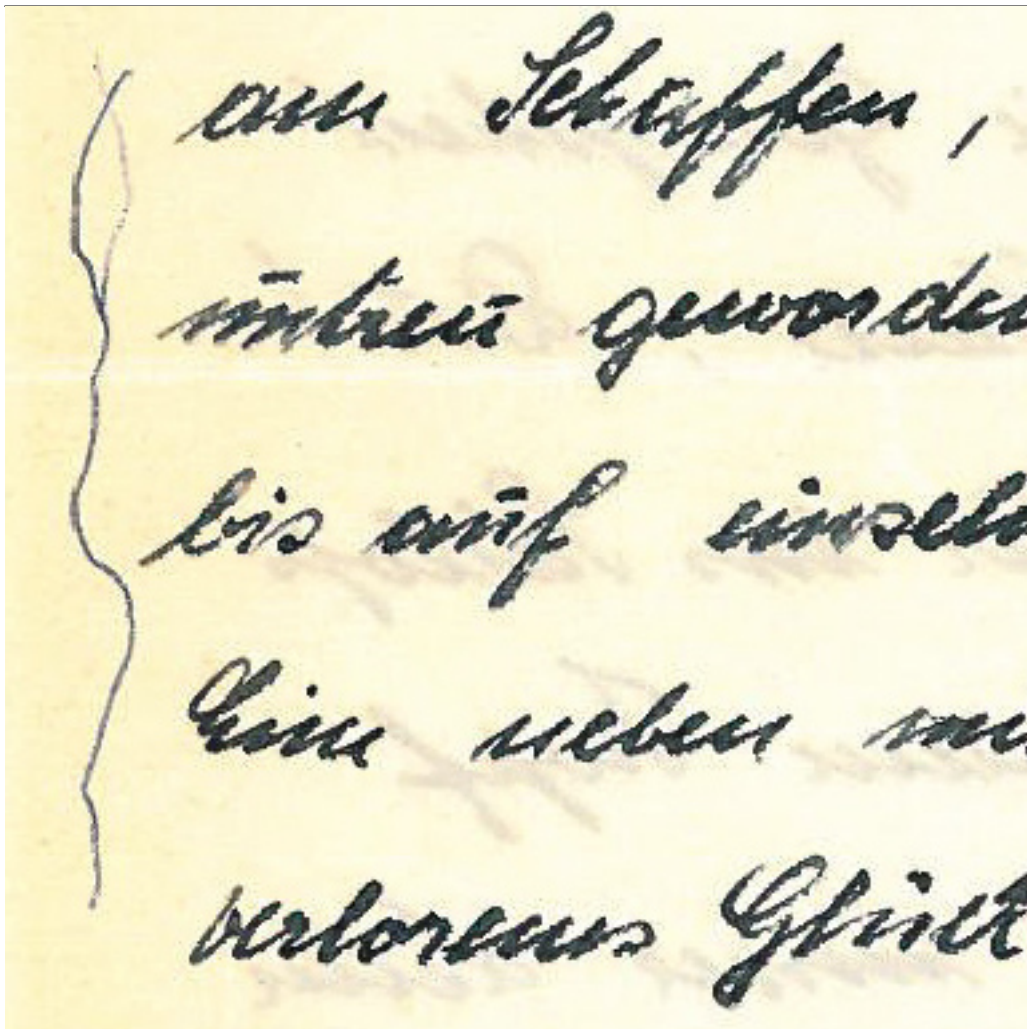 am Schaffen,
untreu geworden
bis auf einzeln
Eine neben mir
verlorenes Glück